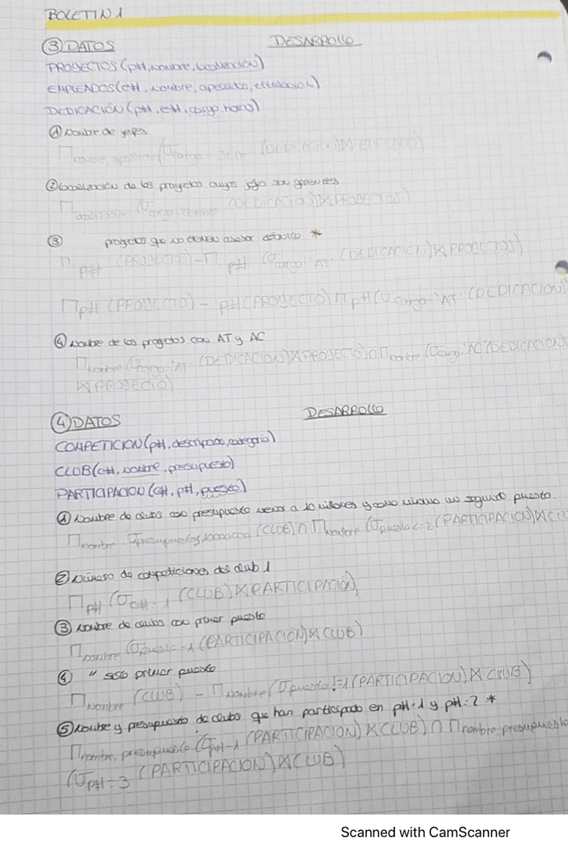 BOLETIN 1
③ DATOS DESARROLLO
PROYECTOS (p#, nombre, localización)
EMPLEADOS (e#, nombre, apellidos, titulación)
DEDICACIÓN (p#, e#, cargo, horas)
① Nombre de
(DEDICACION)⋈EMPLEADOS)
② Localización de los proyectos cuyos son gerentes
(DEDICACION)⋈PROYECTOS)
③ proyectos que no tienen asesor técnico *
Π p# (PROYECTO) - Π p# (σ cargo='AT' (DEDICACION)⋈PROYECTOS)
Π p# (PROYECTO) - p# (PROYECTO) Π p# (σ cargo='AT' (DEDICACION)
④ Nombre de los proyectos con AT y AC
Π nombre (σ cargo='AT' (DEDICACION)⋈PROYECTO) ∩ Π nombre (σ cargo='AC' (DEDICACION)
⋈ PROYECTO)
④ DATOS DESARROLLO
COMPETICION (p#, descripción, categoría)
CLUB (c#, nombre, presupuesto)
PARTICIPACION (c#, p#, puesto)
① Nombre de clubs con presupuesto menor a 10 millones y como mínimo un segundo puesto.
Π nombre σ presupuesto (CLUB) ∩ Π nombre (σ puesto<=2 (PARTICIPACION)⋈CLU
② Número de competiciones del club 1
Π p# (σ c#=1 (CLUB)⋈PARTICIPACION)
③ Nombre de clubs con primer puesto
Π nombre (σ puesto=1 (PARTICIPACION)⋈CLUB)
④ " solo primer puesto
Π nombre (CLUB) - Π nombre (σ puesto!=1 (PARTICIPACION)⋈CLUB)
⑤ Nombre y presupuesto de clubs que han participado en p#=1 y p#=2 *
Π nombre, presupuesto (σ p#=1 (PARTICIPACION)⋈CLUB) ∩ Π nombre, presupuesto
(σ p#=3 (PARTICIPACION)⋈CLUB)
Scanned with CamScanner